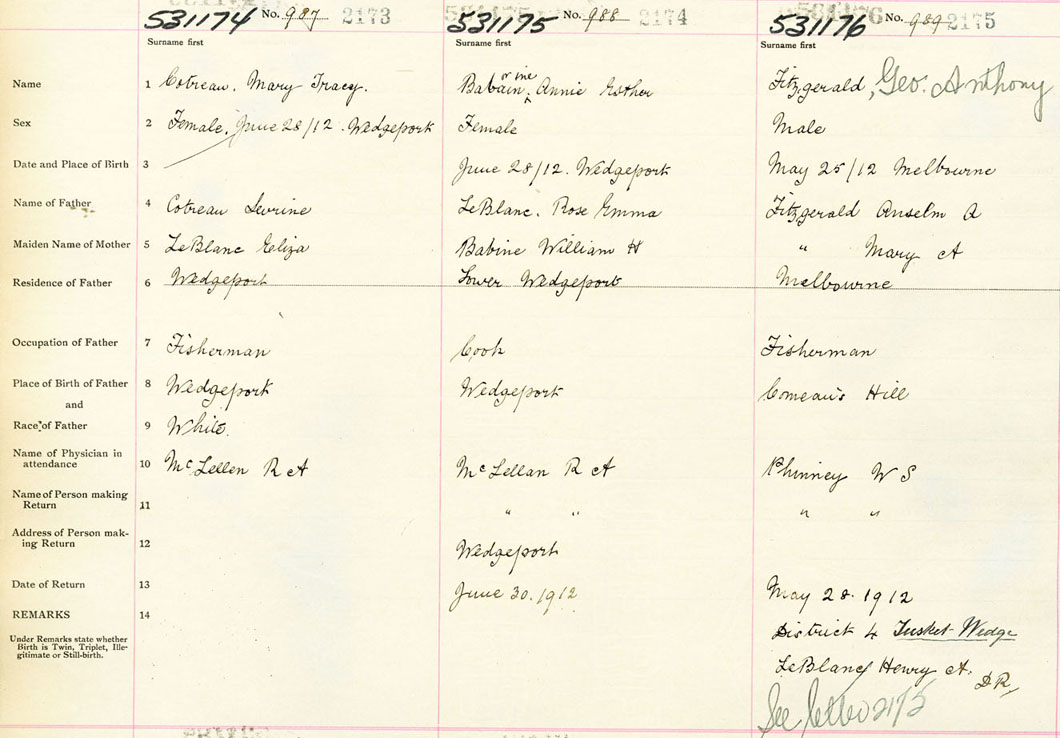 531174 No. 987 2173 531175 No. 988 2174 531176 No. 989 2175
Surname first Surname first Surname first
Name 1 Cotreau, Mary Tracy. Babain, or ine Annie Esther Fitzgerald, Geo. Anthony
Sex 2 Female, June 28/12. Wedgeport Female Male
Date and Place of Birth 3 June 28/12. Wedgeport May 25/12 Melbourne
Name of Father 4 Cotreau Severine LeBlanc. Rose Emma Fitzgerald Anselm A
Maiden Name of Mother 5 LeBlanc Eliza Babine William H " Mary A
Residence of Father 6 Wedgeport Lower Wedgeport Melbourne
Occupation of Father 7 Fisherman Cook Fisherman
Place of Birth of Father 8 Wedgeport Wedgeport Comeau's Hill
and
Race of Father 9 White.
Name of Physician in
attendance 10 McLellen R A McLellan R A Phinney W S
Name of Person making
Return 11 " " " "
Address of Person mak-
ing Return 12 Wedgeport
Date of Return 13 June 30. 1912 May 28. 1912
REMARKS 14
Under Remarks state whether
Birth is Twin, Triplet, Ille-
gitimate or Still-birth.
District 4 Tusket Wedge
LeBlanc Henry A. D.R,
See letter 2175